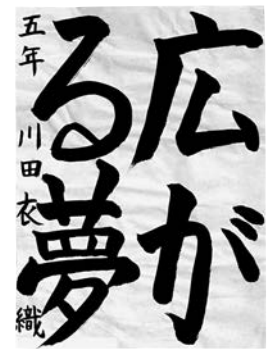 広が
る夢
五年 川田衣織